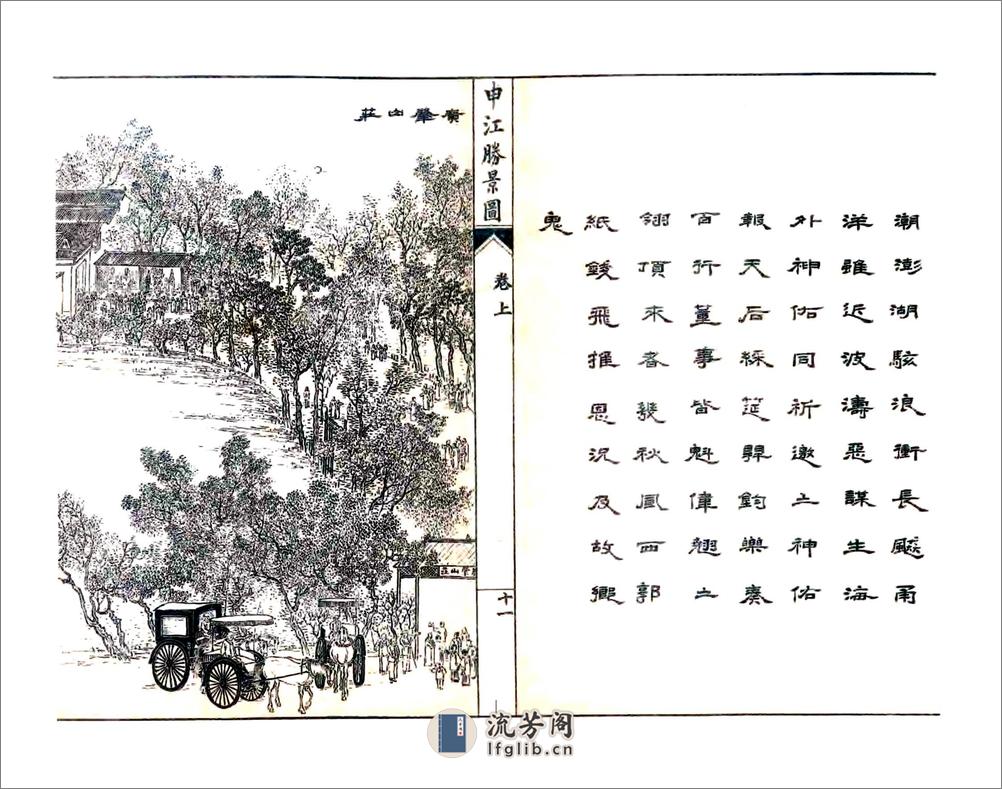 潮澎湖駭浪衝長颷甬
洋雖近波濤惡謀生海
外神佑同祈邀上神佑
報天后綵筵肆鈞樂奏
百行董事皆魁偉翹〻
翎頂來者幾秋風西郭
紙錢飛推恩況及故鄉
鬼
申江勝景圖
卷上
十一
廣肇山莊
肇山莊
流芳阁
lfglib.cn